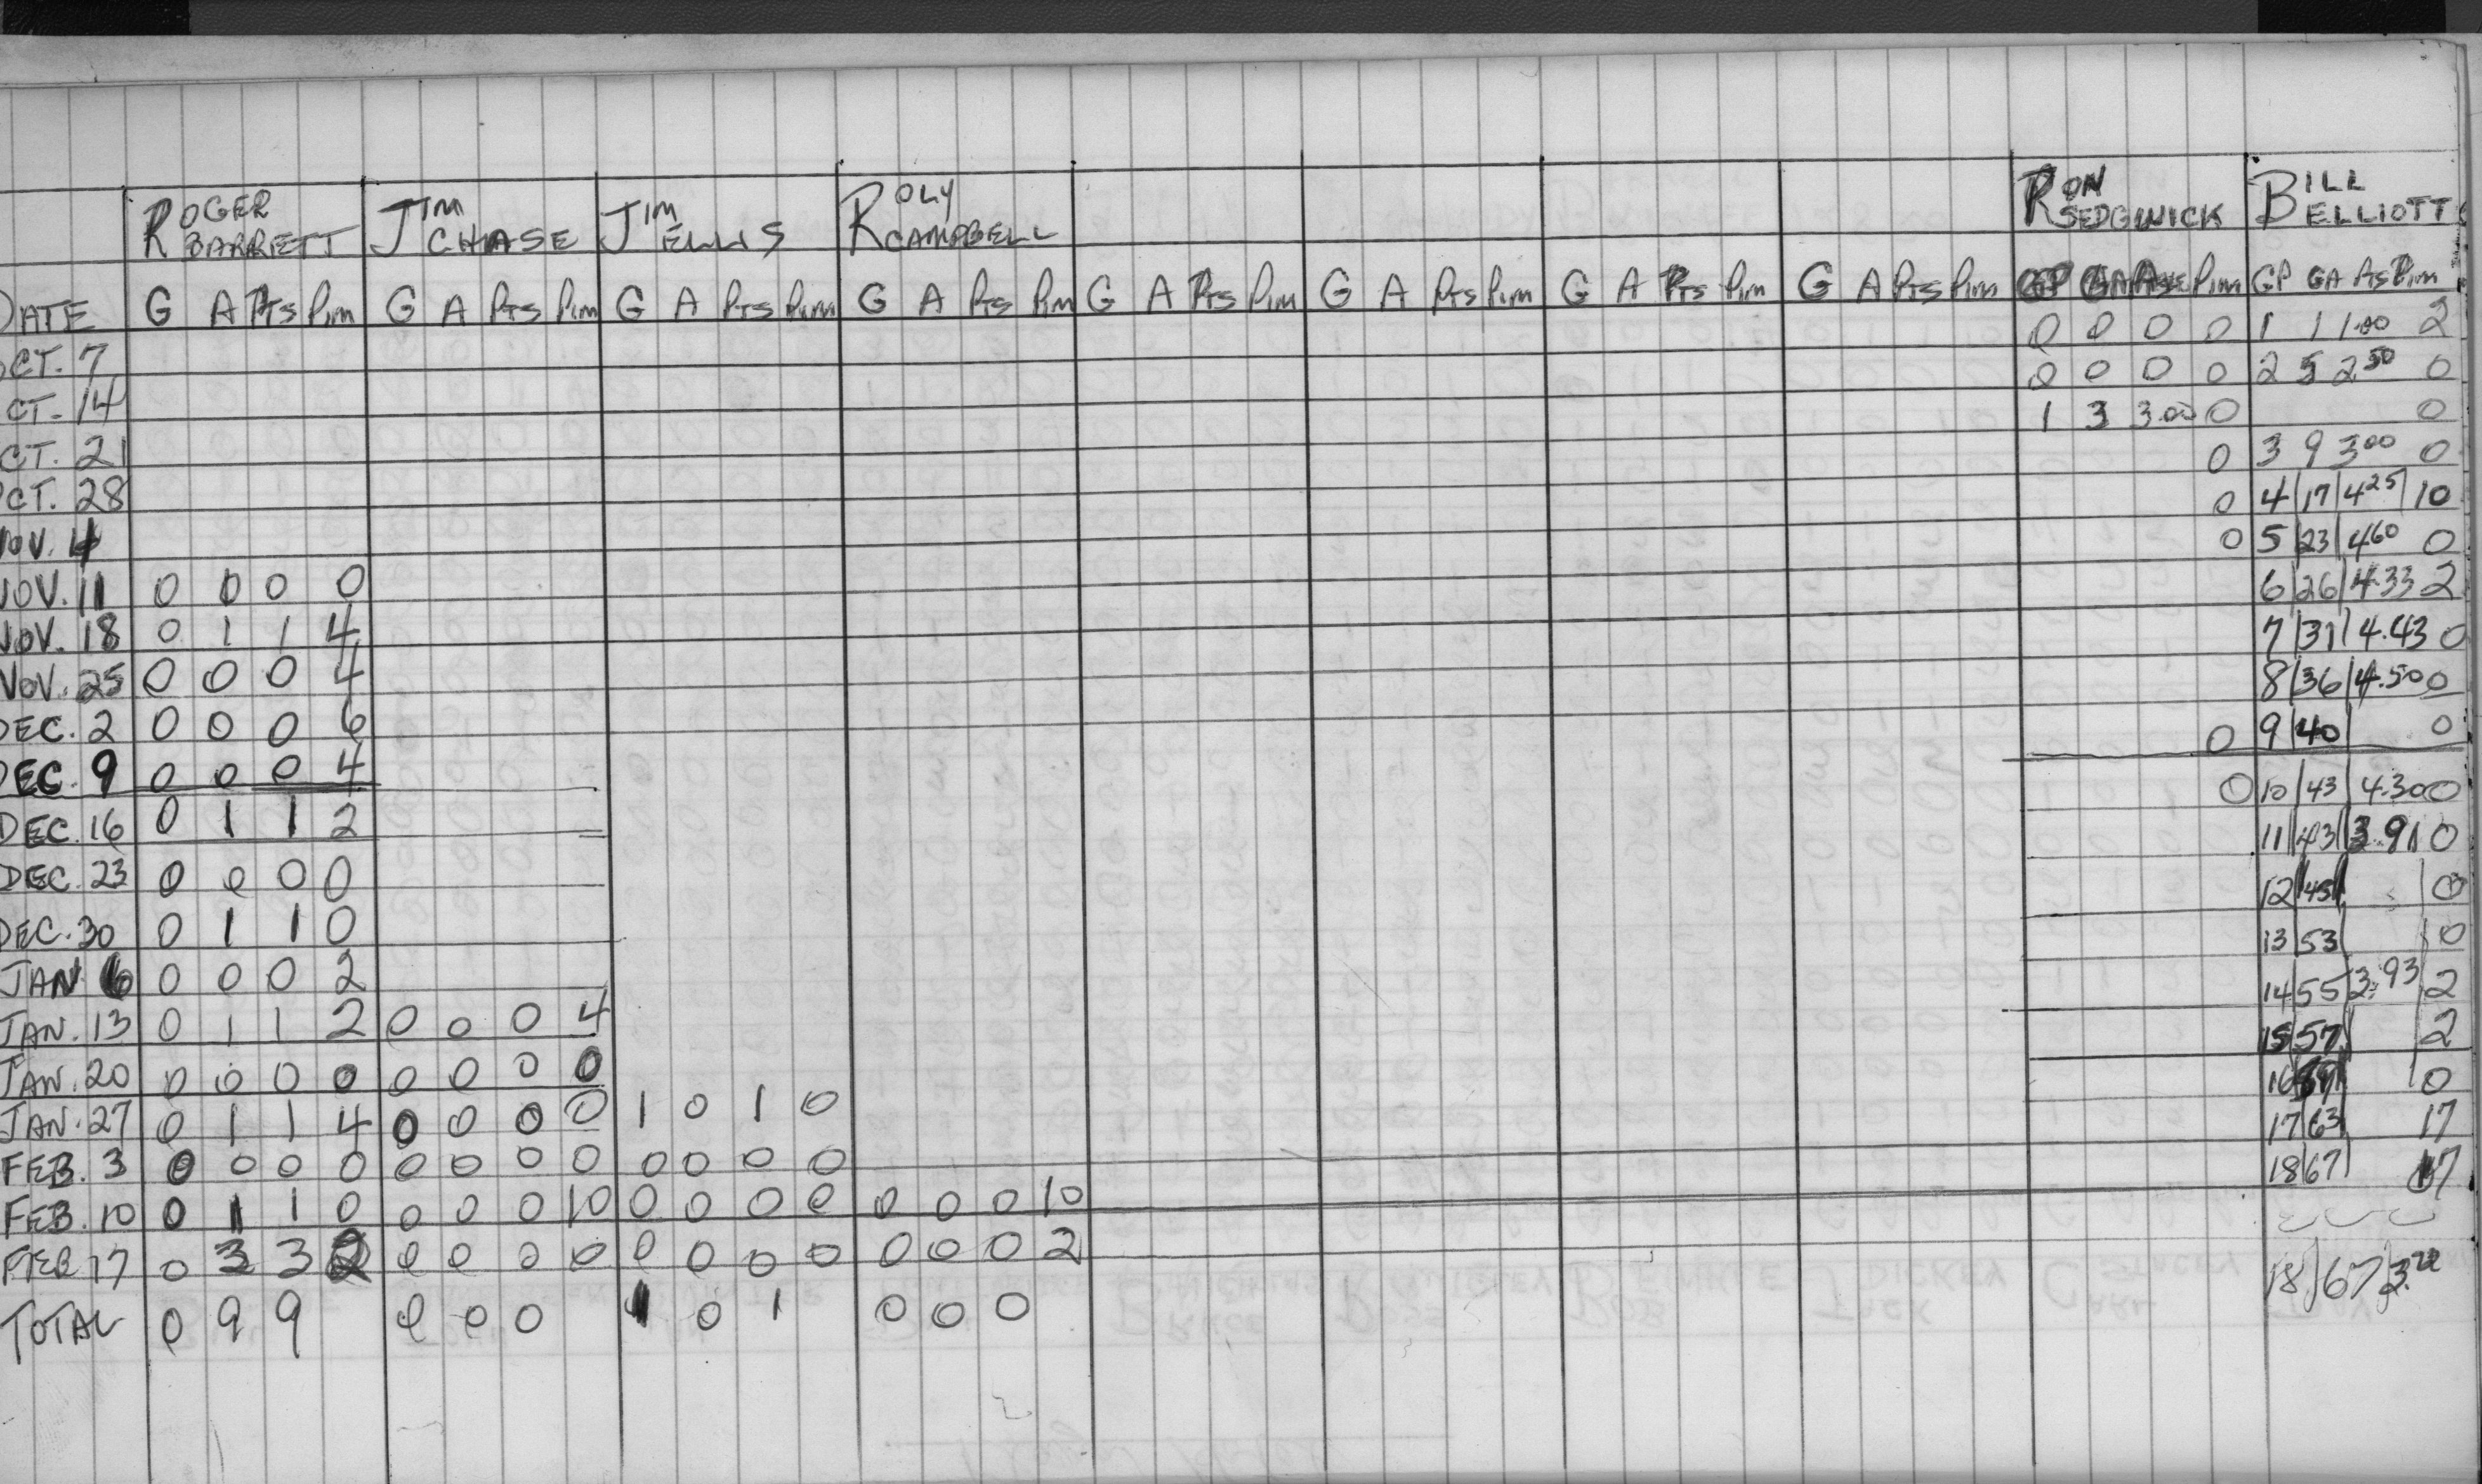 ROGER BARRETT JIM CHASE JIM ELLIS ROLY CAMPBELL RON SEDGWICK BILL ELLIOTT
DATE G A Pts Pim G A Pts Pim G A Pts Pim G A Pts Pim G A Pts Pim G A Pts Pim G A Pts Pim G A Pts Pim GP GA Ave Pim GP GA Ats Pim
OCT. 7 0 0 0 0 1 1 1.00 2
OCT. 14 0 0 0 0 2 5 2.50 0
OCT. 21 1 3 3.00 0 0
OCT. 28 0 3 9 3.00 0
NOV. 4 0 4 17 4.25 10
NOV. 11 0 0 0 0 0 5 23 4.60 0
NOV. 18 0 1 1 4 6 26 4.33 2
NOV. 25 0 0 0 4 7 31 4.43 0
DEC. 2 0 0 0 6 8 36 4.50 0
DEC. 9 0 0 0 4 0 9 40 0
DEC. 16 0 1 1 2 0 10 43 4.30 0
DEC. 23 0 0 0 0 11 43 3.91 0
DEC. 30 0 1 1 0 12 45 0
JAN 6 0 0 0 2 13 53 0
JAN. 13 0 1 1 2 0 0 0 4 14 55 3.93 2
JAN. 20 0 0 0 0 0 0 0 0 15 57 2
JAN. 27 0 1 1 4 0 0 0 0 1 0 1 0 16 0
FEB. 3 0 0 0 0 0 0 0 0 0 0 0 0 17 63 17
FEB. 10 0 1 1 0 0 0 0 10 0 0 0 0 0 0 0 10 18 67 17
FEB 17 0 3 3 2 0 0 0 0 0 0 0 0 0 0 0 2
TOTAL 0 9 9 0 0 0 1 0 1 0 0 0 18 67 3.72